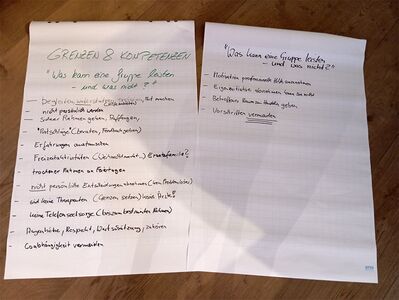 GRENZEN & KOMPETENZEN
"Was kann eine Gruppe leisten
- und was nicht?"
- Begleiten, unterstützen, Mut machen
nicht persönlich werden
- sicherer Rahmen geben, Auffangen,
- "Ratschläge" (beraten, Feedback geben)
- Erfahrungen austauschen
- Freizeitaktivitäten (Weihnachtsmarkt...) Ersatzfamilie?
- trockener Rahmen an Feiertagen
- nicht persönliche Entscheidungen abnehmen (kein Problemlöser)
- sind keine Therapeuten (Grenzen setzen) keine Ärzte!
- keine Telefonseelsorge (bis zum bestimmten Rahmen)
- Akzeptanz, Respekt, Wertschätzung, zuhören
- Coabhängigkeit vermeiden
"Was kann eine Gruppe leisten
- und was nicht?"
- Motivation professionelle Hilfe anzunehmen
- Eigeninitiative abnehmen kann sie nicht
- Betroffenen Raum zum Handeln geben
- Vorschriften vermeiden